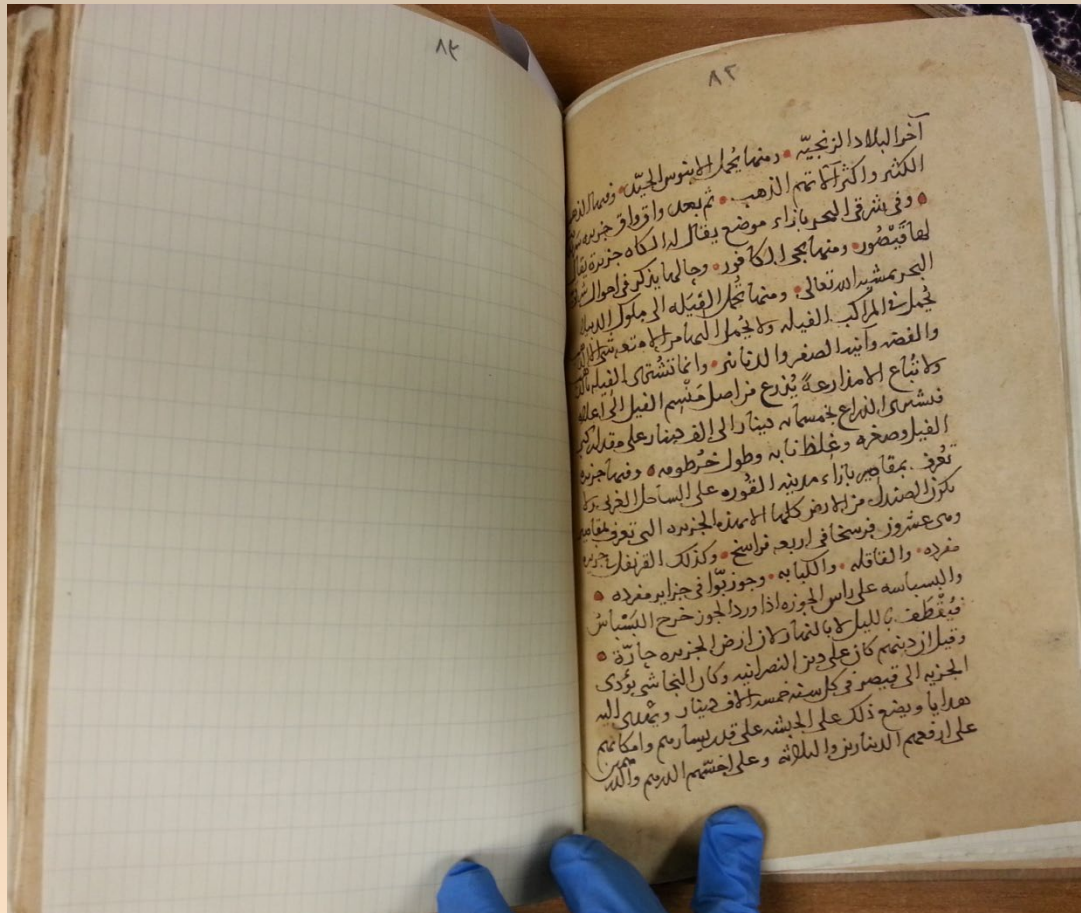 ٨٢
آخر البلاد الزنجيّه ومنها يُحمل الابنوس الجيّد وفيها الذهب
الكثير واكثر آلاتهم الذهب ثم بعد واق واق جزيره
وفى شرقى البحر بازاء موضع يقال له الكاه جزيرة يقال
لها قَيْصُور ومنها يجى الكافور وجالها يذكر فى احوال شرقى
البحر بمشيه الله تعالى ومنها تُحمل الفِيَله الى ملوك
يُحمل فى المراكب الفيله ولا يحمل اليها من الامتعه شى الا
والفضه وآنيه الصفر والدنانير وانما تشترى الفيله
ولا تُباع الا مذارعةً يُذرع من اصل مَنْسِم الفيل الى اعلاه
فيشترى الذراع بخمسمايه دينار الى الف دينار على مقدار كبر
الفيل وصغره وغلظ نابه وطول خُرطومه وفيها جزيره
تعُرف بمقاصير بازاء مدينه القُوره على الساحل الغربى ولا
يكون الصندل من الارض كلها الا بهذه الجزيره التى تعرف بمقاصير
وهى عشرون فرسخا فى اربعه فراسخ وكذلك القرنفل فى جزيره
مفرده والقاقله والكبابه وجوز بّوا فى جزاير مفرده
والبسباسه على راس الجوزه اذا ورد الجوز خرج البَسْباسُ
فيُقْطَف بالليل لا بالنهار لان ارض الجزيره حارّة
وقيل ان دينهم كان على دين النصرانيه وكان النجاشى يؤدى
الجزيه الى قيصر فى كل سنه خمسه الاف دينار ويُهدى اليه
هدايا ويضع ذلك على الحبشه على قدر يسارهم وامكانهم
على ارفعهم الدينارين والثلاثه وعلى اخسّهم الدرهم والدرهمين
٨٤